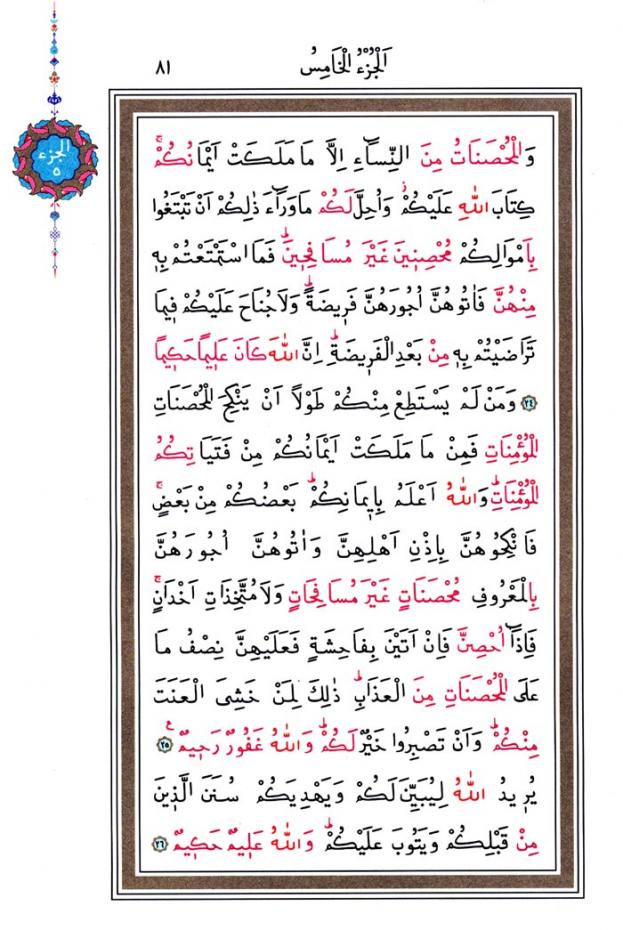 اَلْجُزْءُ الْخَامِسُ
٨١
الجزء
٥
وَالْمُحْصَنَاتُ مِنَ النِّسَٓاءِ اِلَّا مَا مَلَكَتْ اَيْمَانُكُمْۚ
كِتَابَ اللّٰهِ عَلَيْكُمْۚ وَاُحِلَّ لَكُمْ مَا وَرَٓاءَ ذٰلِكُمْ اَنْ تَبْتَغُوا
بِاَمْوَالِكُمْ مُحْصِنٖينَ غَيْرَ مُسَافِحٖينَۜ فَمَا اسْتَمْتَعْتُمْ بِهٖ
مِنْهُنَّ فَاٰتُوهُنَّ اُجُورَهُنَّ فَرٖيضَةًۜ وَلَا جُنَاحَ عَلَيْكُمْ فٖيمَا
تَرَاضَيْتُمْ بِهٖ مِنْ بَعْدِ الْفَرٖيضَةِۜ اِنَّ اللّٰهَ كَانَ عَلٖيمًا حَكٖيمًا
﴿٢٤﴾ وَمَنْ لَمْ يَسْتَطِعْ مِنْكُمْ طَوْلًا اَنْ يَنْكِحَ الْمُحْصَنَاتِ
الْمُؤْمِنَاتِ فَمِنْ مَا مَلَكَتْ اَيْمَانُكُمْ مِنْ فَتَيَاتِكُمُ
الْمُؤْمِنَاتِۜ وَاللّٰهُ اَعْلَمُ بِاٖيمَانِكُمْۜ بَعْضُكُمْ مِنْ بَعْضٍۚ
فَانْكِحُوهُنَّ بِاِذْنِ اَهْلِهِنَّ وَاٰتُوهُنَّ اُجُورَهُنَّ
بِالْمَعْرُوفِ مُحْصَنَاتٍ غَيْرَ مُسَافِحَاتٍ وَلَا مُتَّخِذَاتِ اَخْدَانٍۚ
فَاِذَٓا اُحْصِنَّ فَاِنْ اَتَيْنَ بِفَاحِشَةٍ فَعَلَيْهِنَّ نِصْفُ مَا
عَلَى الْمُحْصَنَاتِ مِنَ الْعَذَابِۜ ذٰلِكَ لِمَنْ خَشِيَ الْعَنَتَ
مِنْكُمْۜ وَاَنْ تَصْبِرُوا خَيْرٌ لَكُمْۜ وَاللّٰهُ غَفُورٌ رَحٖيمٌࣖ ﴿٢٥﴾
يُرٖيدُ اللّٰهُ لِيُبَيِّنَ لَكُمْ وَيَهْدِيَكُمْ سُنَنَ الَّذٖينَ
مِنْ قَبْلِكُمْ وَيَتُوبَ عَلَيْكُمْۜ وَاللّٰهُ عَلٖيمٌ حَكٖيمٌ ﴿٢٦﴾